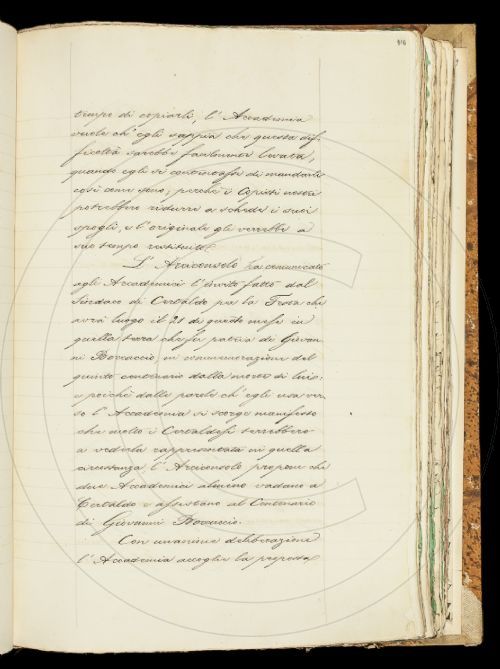 916
tempo di copiarli, l' Accademia
vuole ch' egli sappia che questa dif-
ficoltà sarebbe facilmente levata,
quando egli si contentasse di mandarli
così come sono; perchè i Copisti nostri
potrebbero ridurre a schede i suoi
spogli, e l' originale gli verrebbe a
suo tempo restituito.
L' Arciconsolo ha comunicato
agli Accademici l' invito fatto dal
Sindaco di Certaldo per la Festa che
avrà luogo il 21 di questo mese in
quella terra che fu patria di Giovan-
ni Boccaccio, in commemorazione del
quinto centenario dalla morte di lui:
e poichè dalle parole ch' egli usa ver-
so l' Accademia si scorge manifesto
che molto i Certaldesi terrebbero
a vederla rappresentata in quella
circostanza, l' Arciconsolo propone che
due Accademici almeno vadano a
Certaldo e assistano al Centenario
di Giovanni Boccaccio.
Con unanime deliberazione
l' Accademia accoglie la proposta